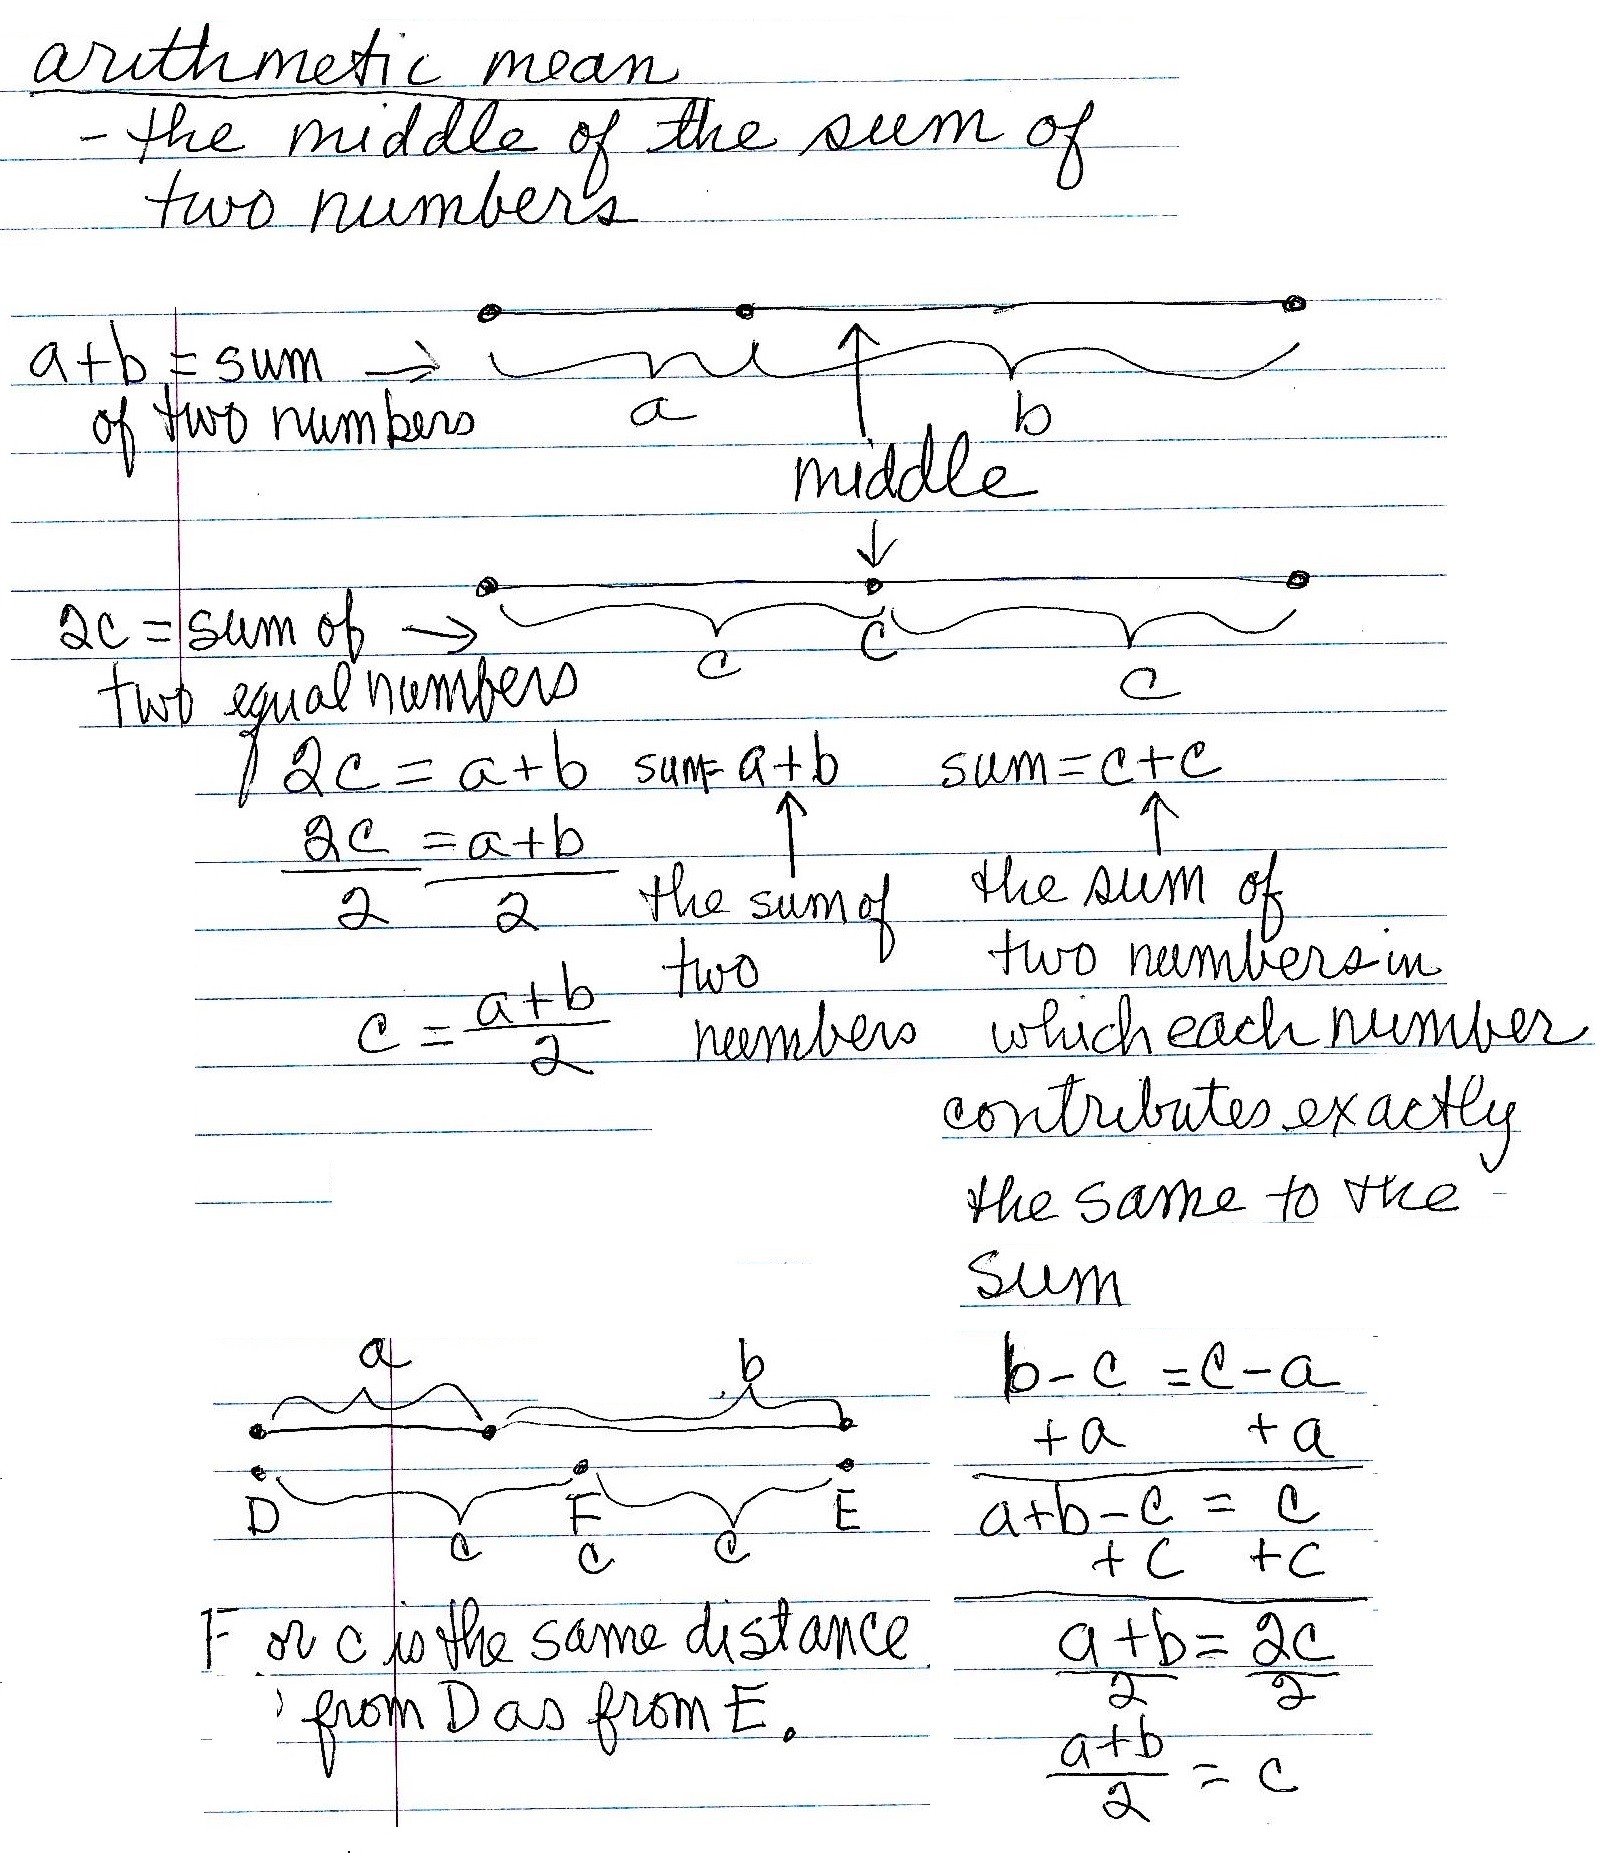 arithmetic mean
- the middle of the sum of
two numbers
a+b = sum →
of two numbers
a
b
middle
2c = sum of →
two equal numbers
c
C
c
2c = a+b
2c/2 = a+b/2
c = a+b/2
sum = a+b
the sum of
two
numbers
sum = c+c
the sum of
two numbers in
which each number
contributes exactly
the same to the
sum
a
b
D
F
E
c
c
c
F or c is the same distance
from D as from E.
b-c = c-a
+a +a
a+b-c = c
+c +c
a+b/2 = 2c/2
a+b/2 = c